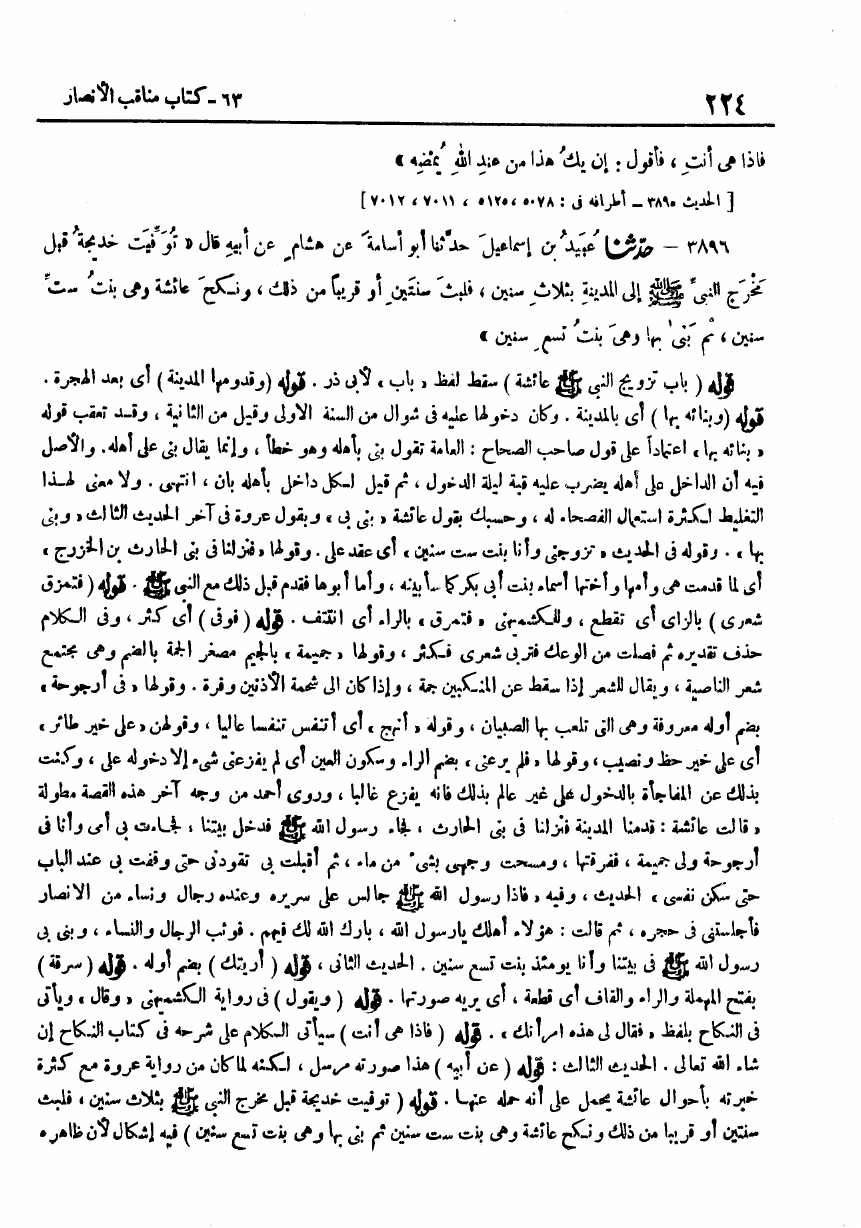 ٢٢٤
٦٣ - كتاب مناقب الأنصار
فاذا هى أنتِ ، فأقول : إن يكُ هذا من عندِ اللهِ يُمْضِه »
[ الحديث ٣٨٩٥ – أطرافه فى : ٥٠٧٨ ، ٥١٢٥ ، ٧٠١١ ، ٧٠١٢ ]
٣٨٩٦ – حدّثنا عُبَيدُ بن إسماعيلَ حدَّثنا أبو أسامةَ عن هشامٍ عن أبيهِ قال « تُوُفِّيَت خديجةُ قبل
مَخْرَجِ النبىِّ ﷺ إلى المدينةِ بثلاثِ سنين ، فلبثَ سنتَينِ أو قريباً من ذلك ، ونـكحَ عائشة وهى بنتُ ستِّ
سنين ، ثم بَنىٰ بها وهىَ بنتُ تسعِ سنين »
قوله ( باب تزويج النبى ﷺ عائشة ) سقط لفظ « باب » لأبى ذر . قوله ( وقدومها المدينة ) أى بعد الهجرة .
قوله ( وبنائه بها ) أى بالمدينة . وكان دخولها عليه فى شوال من السنة الأولى وقيل من الثانية ، وقـد تعقب قوله
« بنائه بها » اعتماداً على قول صاحب الصحاح : العامة تقول بنى بأهله وهو خطأ ، وإنما يقال بنى على أهله. والأصل
فيه أن الداخل على أهله يضرب عليه قبة ليلة الدخول ، ثم قيل لـكل داخل بأهله بان ، انتهى . ولا معنى لهـذا
التغليط لـكثرة استعمال الفصحاء له ، وحسبك بقول عائشة « بنى بى » وبقول عروة فى آخر الحديث الثالث « وبنى
بها » . وقوله فى الحديث « تزوجنى وأنا بنت ست سنين » أى عقد على . وقولها « فنزلنا فى بنى الحارث بن الخزرج »
أى لما قدمت هى وأمها وأختها أسماء بنت أبى بكر كما سأبينه ، وأما أبوها فقدم قبل ذلك مع النبى ﷺ . قوله ( فتمزق
شعرى ) بالزاى أى تقطع ، وللـكشميهنى « فتمرق » بالراء أى انتتف . قوله ( فوفى ) أى كثر ، وفى الـكلام
حذف تقديره ثم فصلت من الوعك فتربى شعرى فـكثر ، وقولها « جميمة » بالجيم مصغر الجمة بالضم وهى مجتمع
شعر الناصية ، ويقال للشعر إذا سقط عن المنـكبين جمة ، وإذا كان الى شحمة الأذنين وفرة . وقولها « فى أرجوحة »
بضم أوله معروفة وهى التى تلعب بها الصبيان ، وقوله « أنهج » أى أتنفس تنفسا عاليا ، وقولهن « على خير طائر »
أى على خير حظ ونصيب ، وقولها « فلم يرعنى » بضم الراء وسكون العين أى لم يفزعنى شىء إلا دخوله على ، وكنت
بذلك عن المفاجأة بالدخول على غير عالم بذلك فانه يفزع غالبا ، وروى أحمد من وجه آخر هذه القصة مطولة
« قالت عائشة : قدمنا المدينة فنزلنا فى بنى الحارث ، فجاء رسول الله ﷺ فدخل بيتنا ، فجـاءت بى أمى وأنا فى
أرجوحة ولى جميمة ، ففرقتها ، ومسحت وجهى بشىء من ماء ، ثم أقبلت بى تقودنى حتى وقفت بى عند الباب
حتى سكن نفسى » الحديث ، وفيه « فاذا رسول الله ﷺ جالس على سريره وعنده رجال ونساء من الانصار
فأجلستنى فى حجره ، ثم قالت : هؤلاء أهلك يارسول الله ، بارك الله لك فيهم . فوثب الرجال والنساء ، وبنى بى
رسول الله ﷺ فى بيتنا وأنا يومئذ بنت تسع سنين . الحديث الثانى ، قوله ( أريتك ) بضم أوله . قوله ( سرقة )
بفتح المهملة والراء والقاف أى قطعة ، أى يريه صورتها . قوله ( ويقول ) فى رواية الـكشميهنى « وقال » ويأتى
فى النـكاح بلفظ « فقال لى هذه امرأتك » . قوله ( فاذا هى أنت ) سيأتى الـكلام على شرحه فى كتاب النـكاح إن
شاء الله تعالى . الحديث الثالث : قوله ( عن أبيه ) هذا صورته مرسل ، لـكنه لما كان من رواية عروة مع كثرة
خبرته بأحوال عائشة يحمل على أنه حمله عنهـا . قوله ( توفيت خديجة قبل مخرج النبى ﷺ بثلاث سنين ، فلبث
سنتين أو قريبا من ذلك ونـكح عائشة وهى بنت ست سنين ثم بنى بها وهى بنت تسع سنين ) فيه إشكال لأن ظاهره